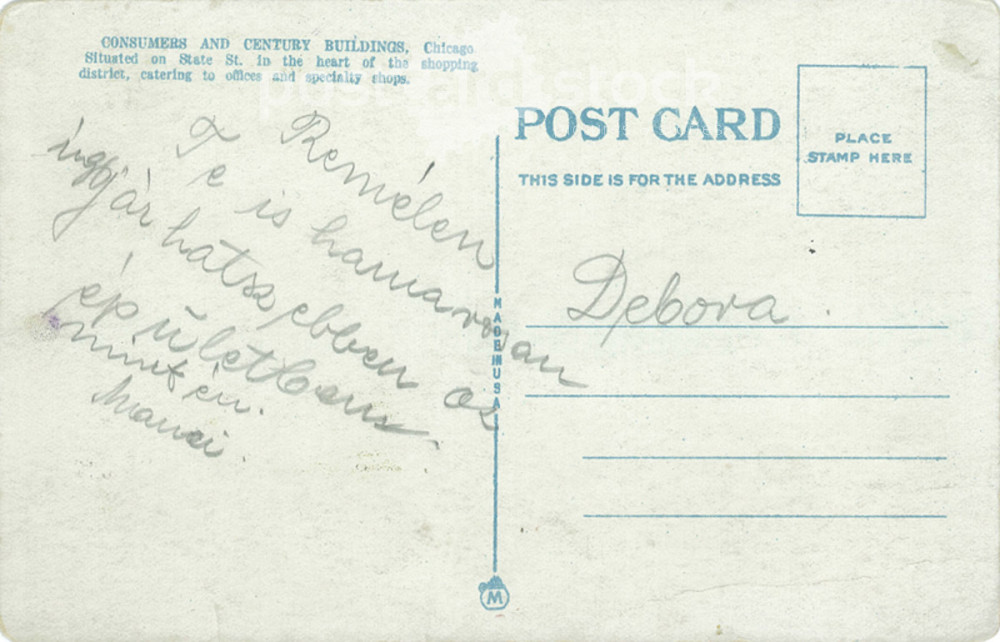 CONSUMERS AND CENTURY BUILDINGS, Chicago
Situated on State St. in the heart of the shopping
district, catering to offices and specialty shops.
POST CARD
THIS SIDE IS FOR THE ADDRESS
PLACE
STAMP HERE
MADE IN U S A
Remélem
Te is hamarosan
járhatsz ebben az
épületben
mint én.
Manci.
Debora.
M